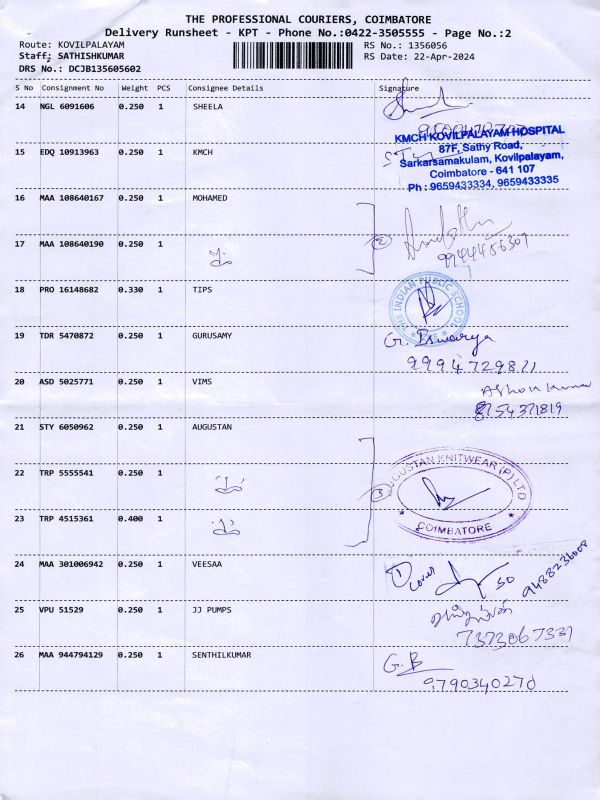 THE PROFESSIONAL COURIERS, COIMBATORE
Delivery Runsheet - KPT - Phone No.:0422-3505555 - Page No.:2
Route: KOVILPALAYAM RS No.: 1356056
Staff: SATHISHKUMAR RS Date: 22-Apr-2024
DRS No.: DCJB135605602
S No Consignment No Weight PCS Consignee Details Signature
14 NGL 6091606 0.250 1 SHEELA
KMCH KOVILPALAYAM HOSPITAL
87F, Sathy Road,
Sarkarsamakulam, Kovilpalayam,
Coimbatore - 641 107
Ph : 9659433334, 9659433335
15 EDQ 10913963 0.250 1 KMCH
16 MAA 108640167 0.250 1 MOHAMED
17 MAA 108640190 0.250 1
2
9944456307
18 PRO 16148682 0.330 1 TIPS
THE INDIAN PUBLIC SCHOOL
19 TDR 5470872 0.250 1 GURUSAMY
G. Iswarya
9994729821
20 ASD 5025771 0.250 1 VIMS
Ashok Kumar
8754371819
21 STY 6050962 0.250 1 AUGUSTAN
22 TRP 5555541 0.250 1
23 TRP 4515361 0.400 1
3
AUGUSTAN KNITWEAR (P) LTD
COIMBATORE
24 MAA 301006942 0.250 1 VEESAA
1 cover 50 9488236008
25 VPU 51529 0.250 1 JJ PUMPS
7373067331
26 MAA 944794129 0.250 1 SENTHILKUMAR
G.B
9790340270